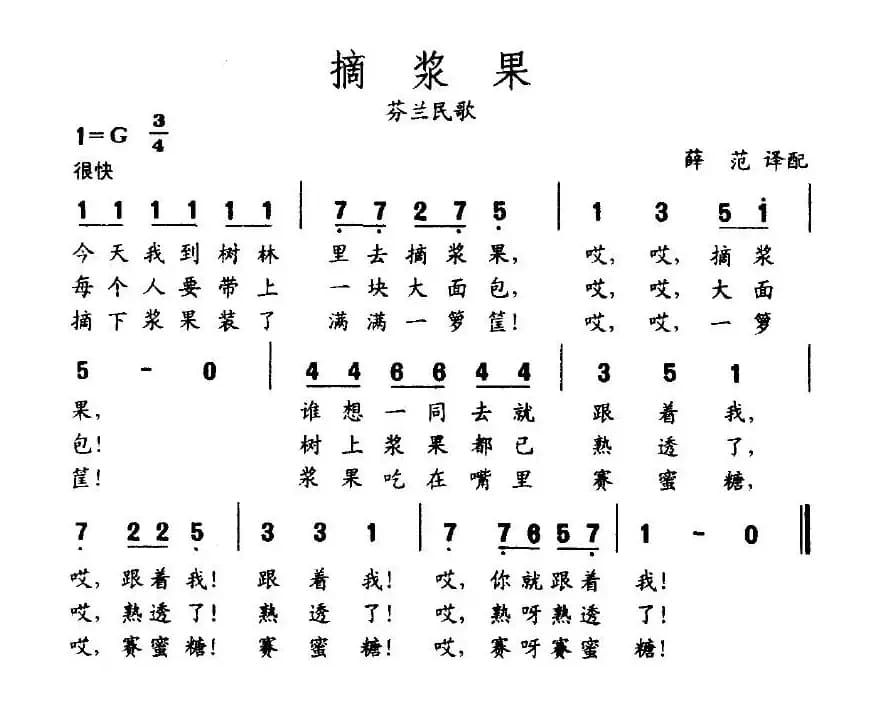 摘 浆 果
芬兰民歌
1=G 3/4
薛 范 译配
很快
1 1 1 1 1 1 | 7 7 2 7 5 | 1 3 5 1 |
今天我到树林 里去摘浆果, 哎, 哎, 摘浆
每个人要带上 一块大面包, 哎, 哎, 大面
摘下浆果装了 满满一箩筐! 哎, 哎, 一箩
5 - 0 | 4 4 6 6 4 4 | 3 5 1 |
果, 谁想一同去就 跟着我,
包! 树上浆果都已 熟透了,
筐! 浆果吃在嘴里 赛蜜糖,
7 2 2 5 | 3 3 1 | 7 7 6 5 7 | 1 - 0 ‖
哎, 跟着我! 跟着我! 哎, 你就跟着我!
哎, 熟透了! 熟透了! 哎, 熟呀熟透了!
哎, 赛蜜糖! 赛蜜糖! 哎, 赛呀赛蜜糖!